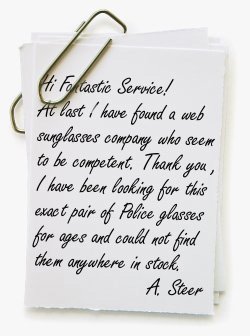 Hi Fantastic Service!
At last I have found a web
sunglasses company who seem
to be competent. Thank you,
I have been looking for this
exact pair of Police glasses
for ages and could not find
them anywhere in stock.
A. Steer